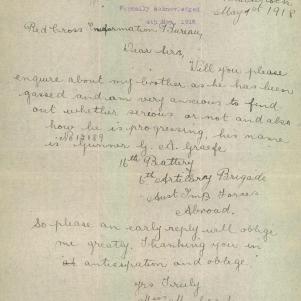 Formally Acknowledged
May 1st 1918
Red Cross Information Bureau,
Dear Sirs,
Will you please
enquire about my brother as he has been
gassed and am very anxious to find
out whether serious or not and also
how he is progressing, his name
No 12189
is Gunner G. A. Graefe
16th Battery
6th Artillery Brigade
Aust Imp Forces
Abroad.
So please an early reply will oblige
me greatly. Thanking you in
anticipation and oblige.
yrs Truly